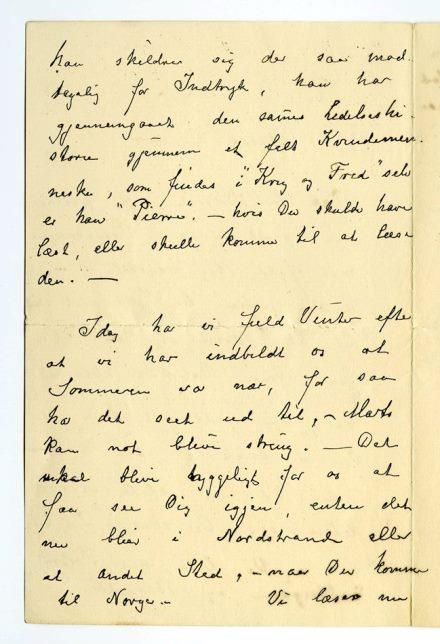 han skildrer sig der saa mod-
tagelig for Indtryk, han har
gjennemgaaet den samme Lidelseshi-
storie gjennem et helt Kvindemen-
neske, som findes i "Krig og Fred" selv
er han "Pierre". — hvis Du skulde have
læst, eller skulle komme til at læse
den. —
Idag har vi fuld Vinter efter
at vi har indbildt os at
Sommeren var nær, for saa
har det seet ud til, – Marts
kan nok blive streng. — Det
skal blive hyggeligt for os at
faa see Dig igjen, enten det
nu bliver i Nordstrand eller
et andet Sted, – naar Du kommer
til Norge. – Vi læser nu